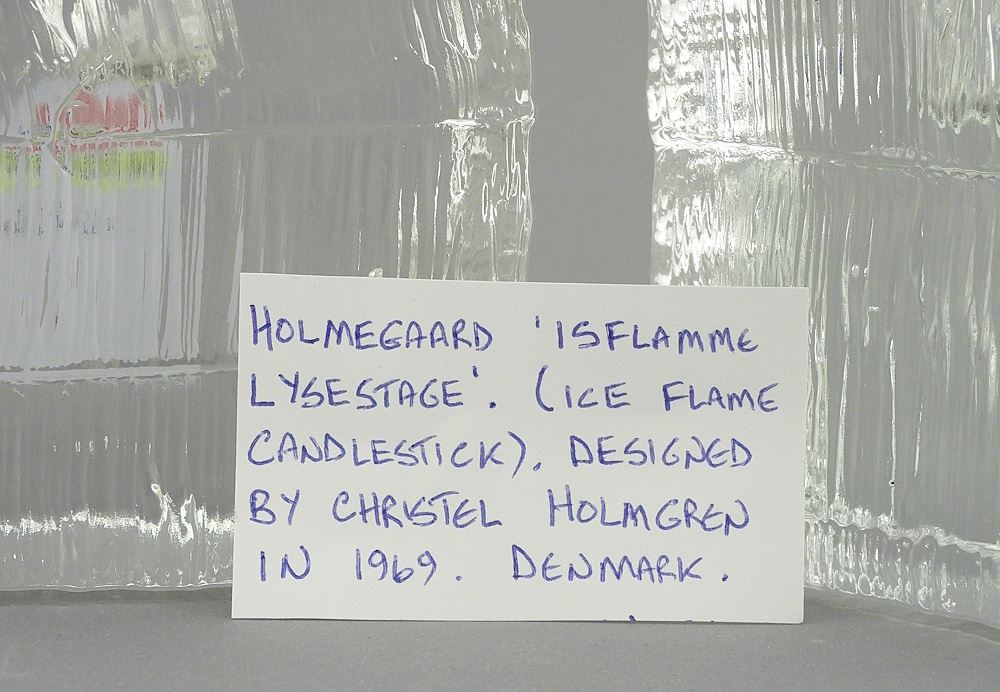 HOLMEGAARD 'ISFLAMME
LYSESTAGE'. (ICE FLAME
CANDLESTICK). DESIGNED
BY CHRISTEL HOLMGREN
IN 1969. DENMARK.